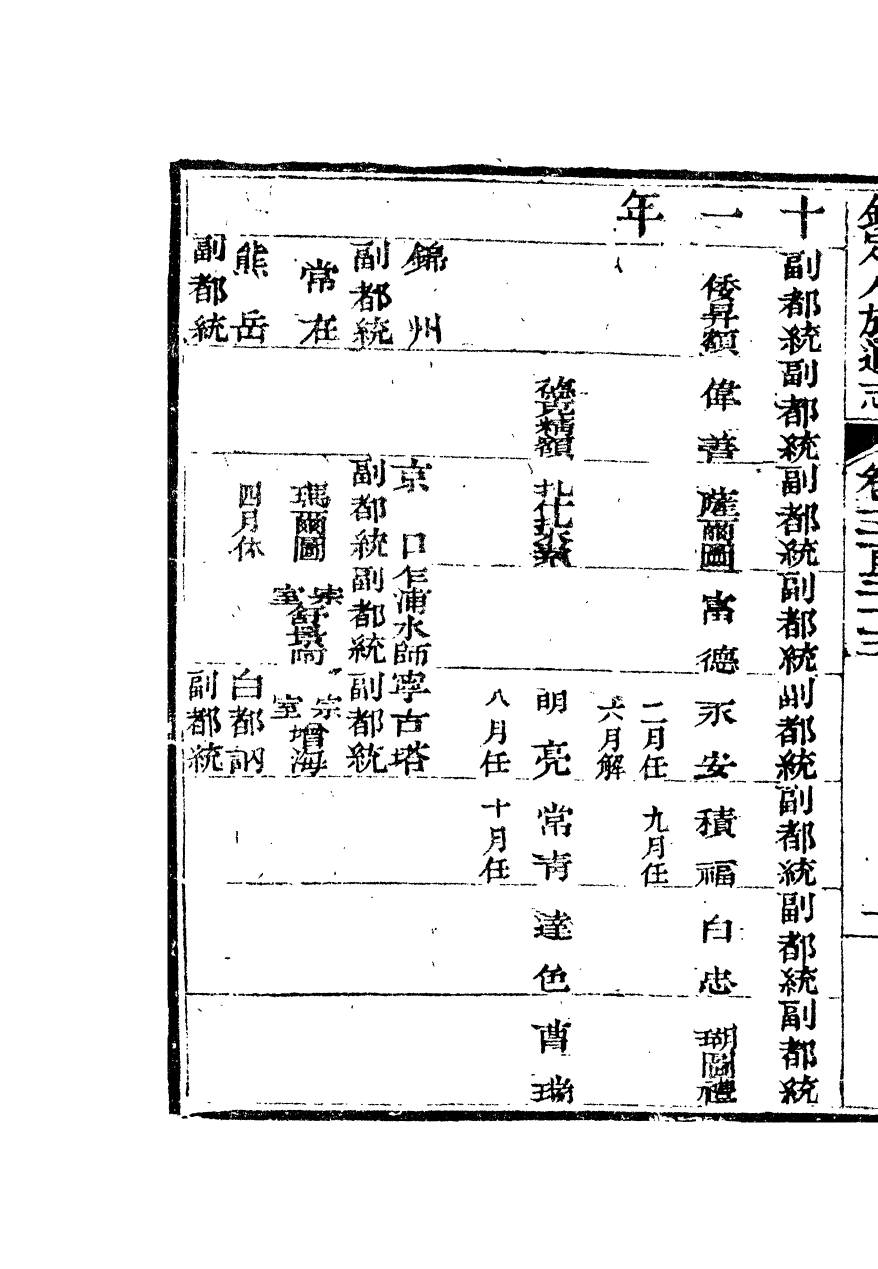 欽定八旗通志
十 副都統 副都統 副都統 副都統 副都統 副都統 副都統 副都統
一 倭昇額 偉善 薩爾圖 富德 永安 積福 白忠 瑚圖禮
二月任 九月任
年 六月解
明亮 常青 達色 曹瑞
八月任 十月任
錦州 京口 乍浦水師 寧古塔
副都統 副都統 副都統 副都統
常在 瑪爾圖 宗室 宗室增海
熊岳 四月休 白都訥
副都統 副都統